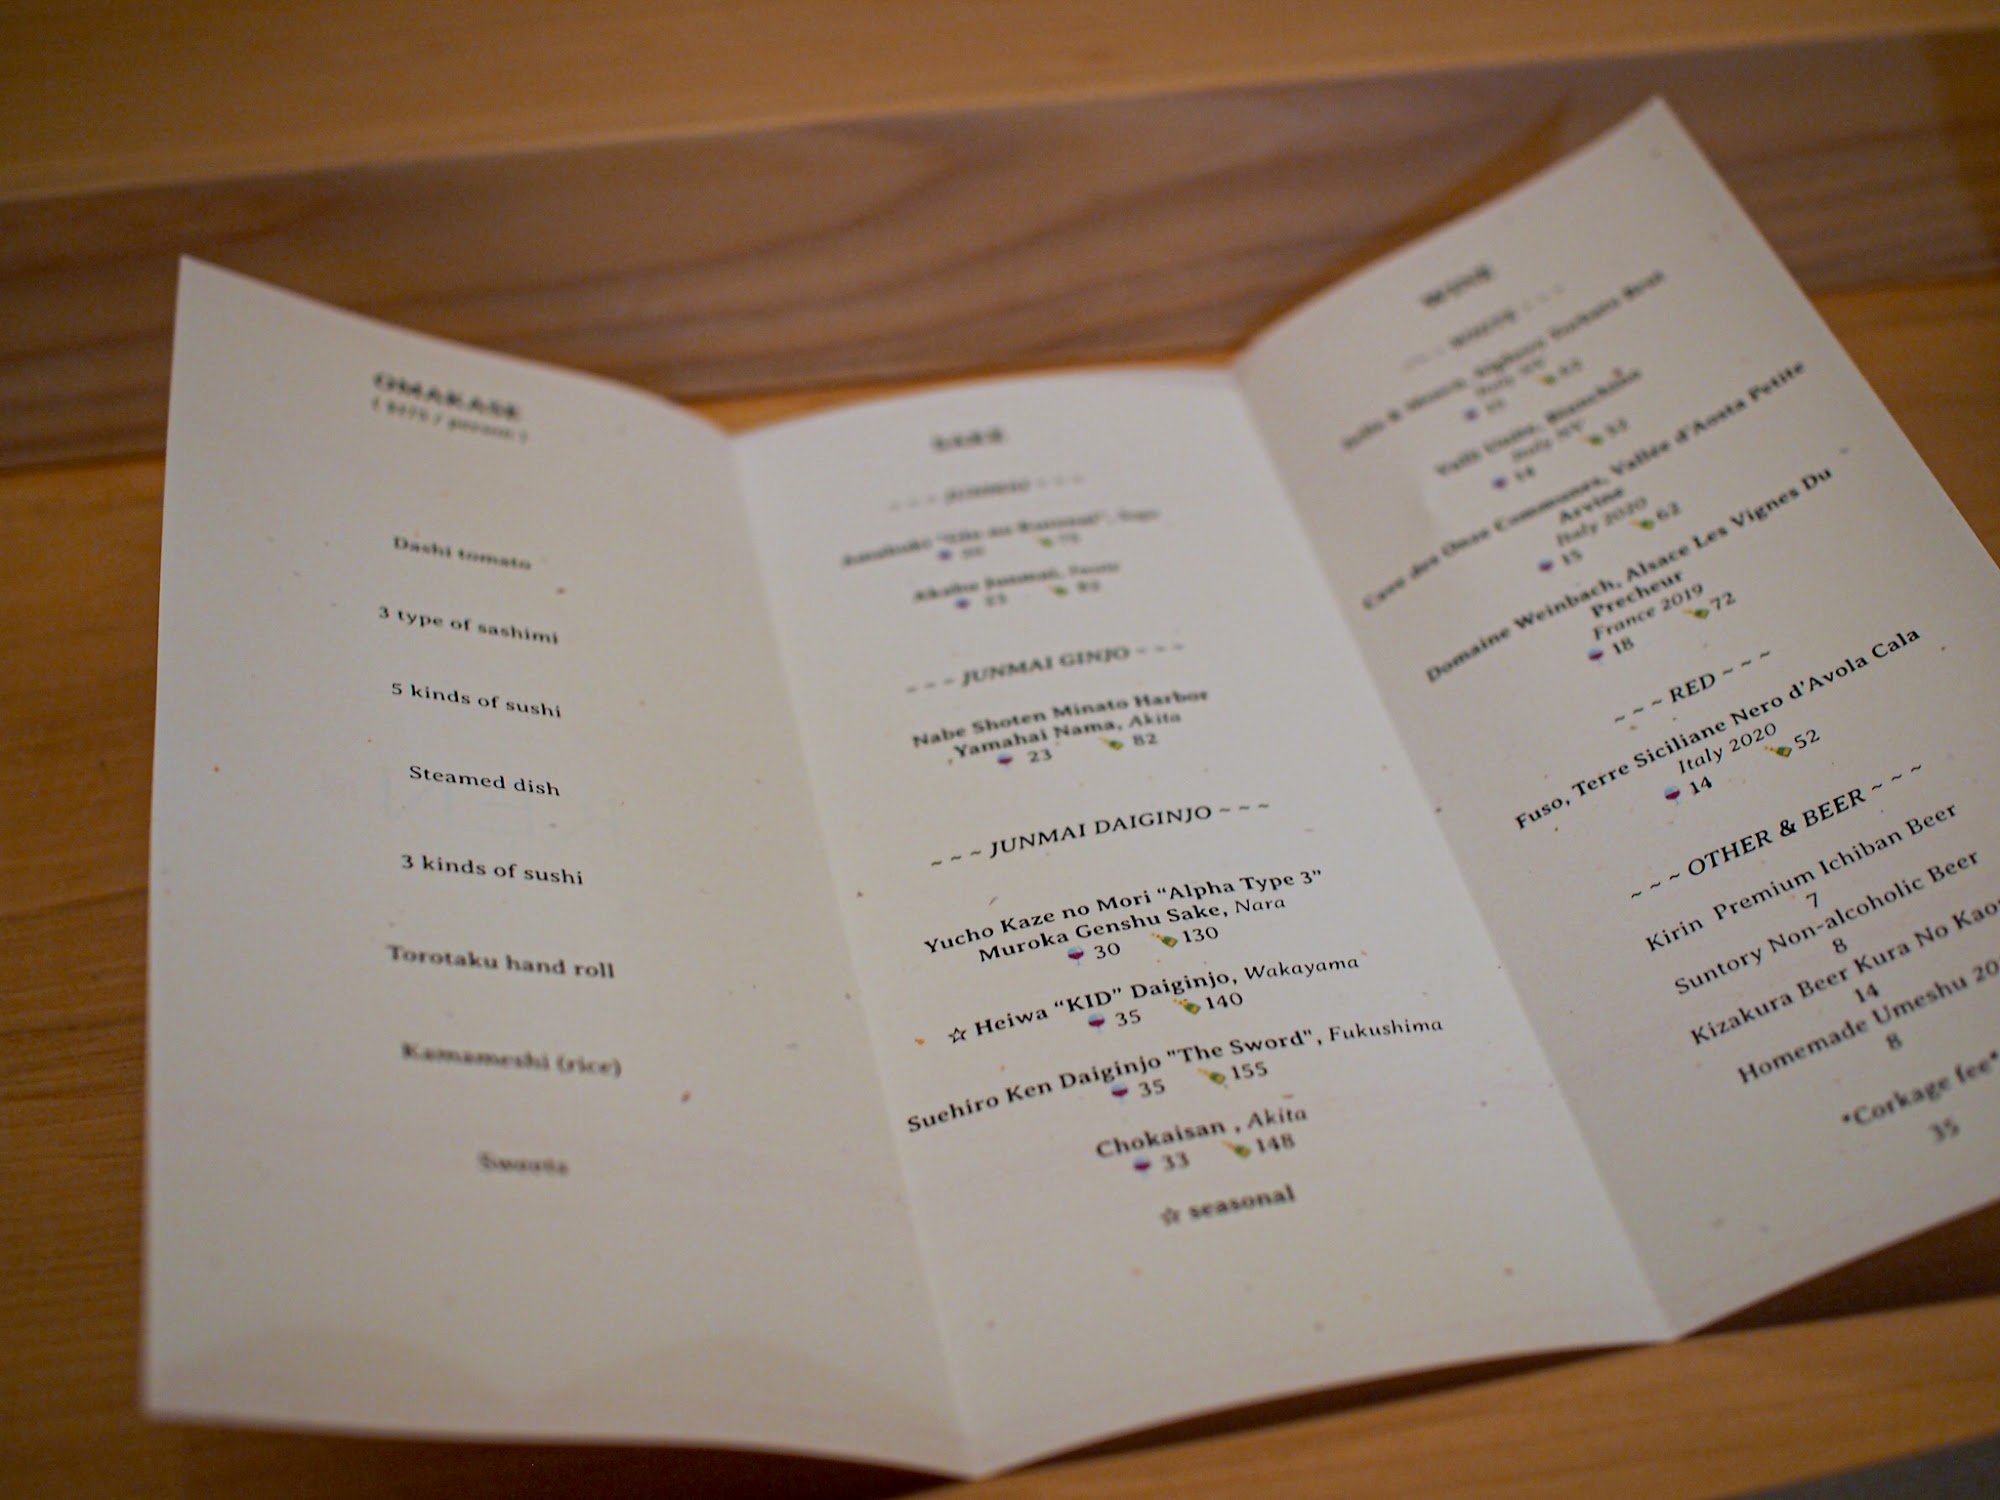 OMAKASE
/ person )
Dashi tomato
3 type of sashimi
5 kinds of sushi
Steamed dish
3 kinds of sushi
Torotaku hand roll
Kamameshi (rice)
SAKE
~ ~ ~ JUNMAI ~ ~ ~
Akabu Junmai,
~ ~ ~ JUNMAI GINJO ~ ~ ~
Nabe Shoten Minato Harbor
Yamahai Nama, Akita
23 82
~ ~ ~ JUNMAI DAIGINJO ~ ~ ~
Yucho Kaze no Mori “Alpha Type 3”
Muroka Genshu Sake, Nara
30 130
☆ Heiwa “KID” Daiginjo, Wakayama
35 140
Suehiro Ken Daiginjo "The Sword", Fukushima
35 155
Chokaisan , Akita
33 148
☆ seasonal
Cave des Onze Communes, Vallée d'Aosta Petite
Arvine
Italy 2020
15 62
Domaine Weinbach, Alsace Les Vignes Du
Precheur
France 2019
18 72
~ ~ ~ RED ~ ~ ~
Fuso, Terre Siciliane Nero d'Avola Cala
Italy 2020
14 52
~ ~ ~ OTHER & BEER ~ ~ ~
Kirin Premium Ichiban Beer
7
Suntory Non-alcoholic Beer
8
Kizakura Beer Kura No Kao
14
Homemade Umeshu 20
8
*Corkage fee*
35